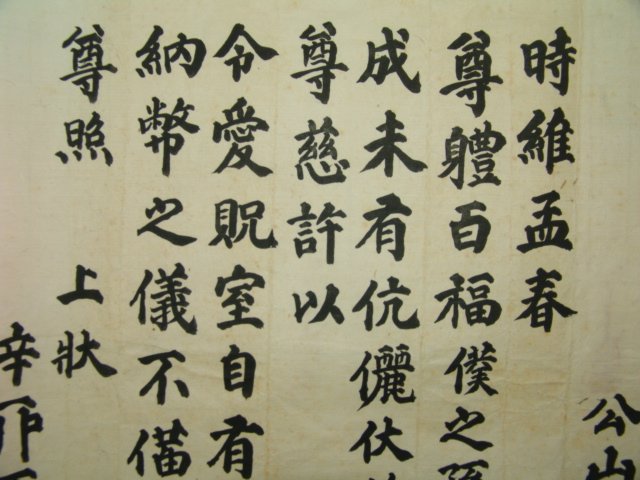 公山
時維孟春
尊軆百福僕之
成未有伉儷伏
尊慈許以
令愛貺室自有
納幣之儀不備
尊照 上狀
辛卯